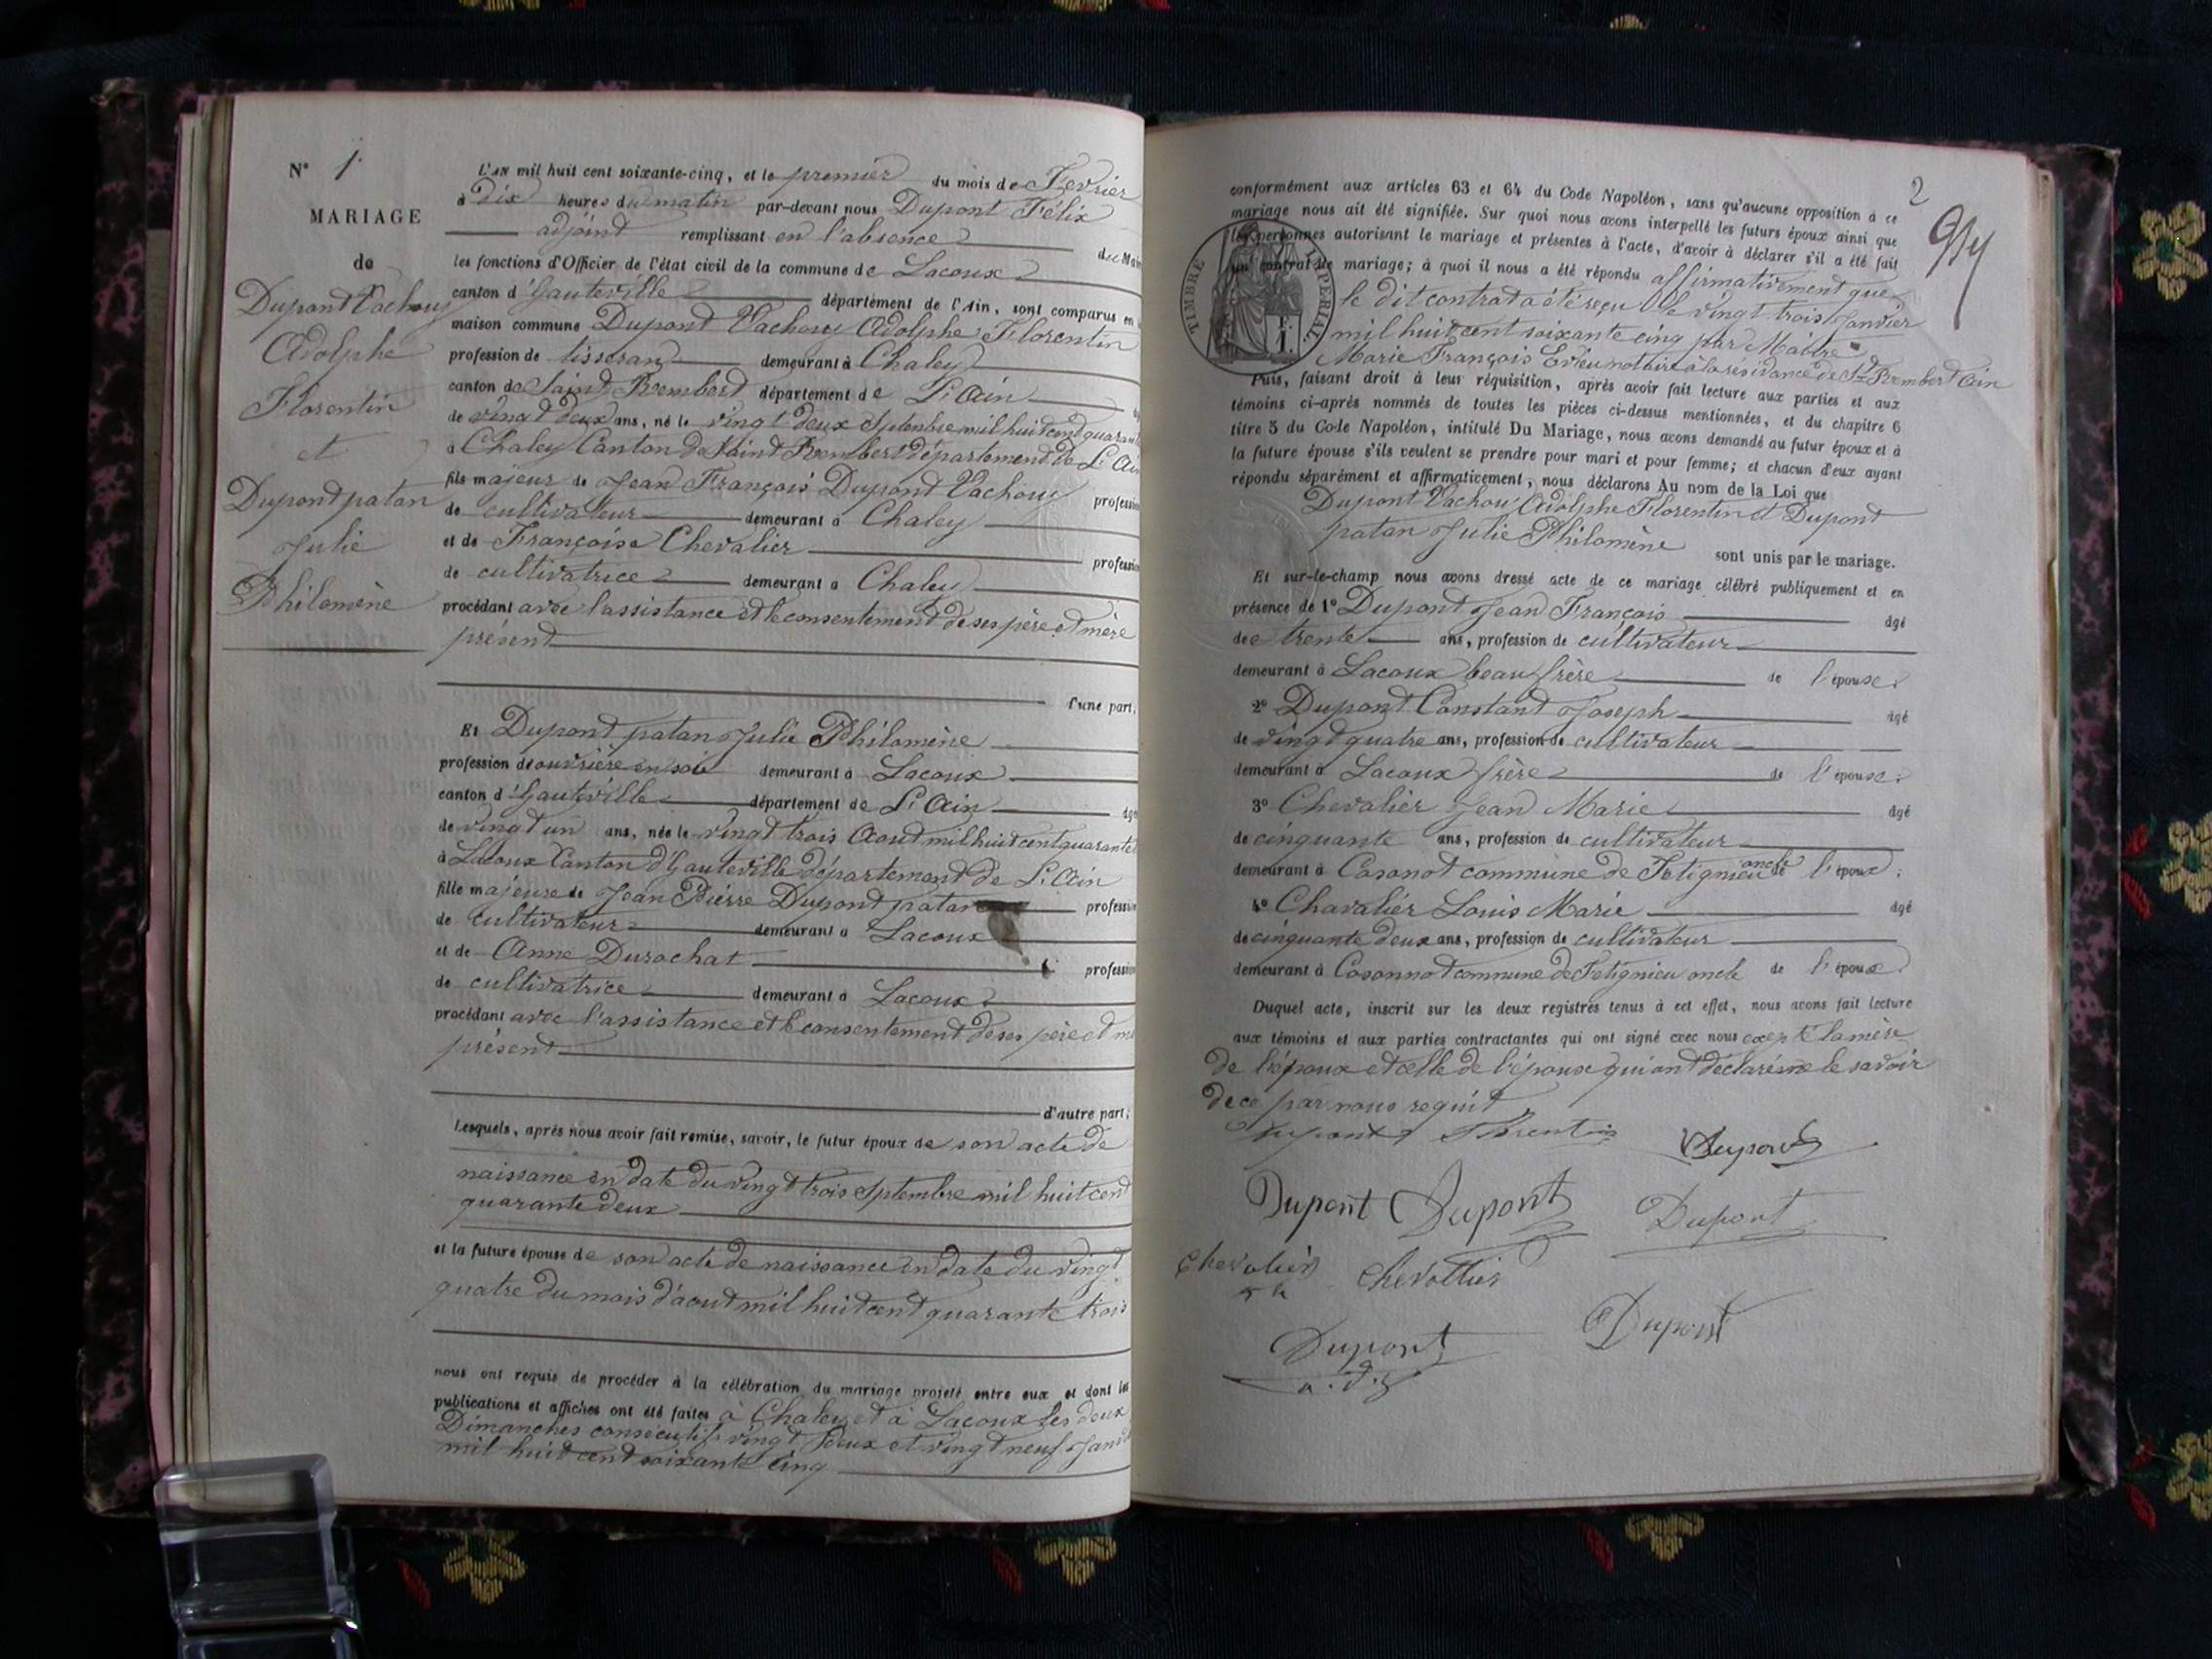 N° 1.
MARIAGE
de
Dupont Vachoux
Adolphe
Florentin
et
Dupond patan
Julie
Philomène
L'AN mil huit cent soixante-cinq, et le premier du mois de Fevrier
à dix heures du matin par-devant nous Dupont Félix
adjoint remplissant en l'absence du Mai
les fonctions d'Officier de l'état civil de la commune de Lacoux
canton d'hauteville département de l'Ain, sont comparus en
maison commune Dupont Vachoux Adolphe Florentin
profession de tisseran demeurant à Chaley
canton de Saint Rembert département de L'Ain
de vingt deux ans, né le vingt deux Septembre mil huit cent quarante
à Chaley Canton de Saint Rembert département de L'Ain
fils majeur de Jean François Dupond Vachoux profession
de cultivateur demeurant à Chaley
et de Françoise Chevalier profession
de cultivatrice demeurant à Chaley
procédant avec l'assistance et le consentement de ses père et mère
présent
l'une part,
Et Dupond patan Julie Philomène
profession de ouvrière en soie demeurant à Lacoux
canton d'hauteville département de L'Ain âgé
de vingt un ans, née le vingt trois Aout mil huit cent quarante
à Lacoux Canton d'hauteville département de L'Ain
fille majeure de Jean Pierre Dupond patan profession
de cultivateur demeurant à Lacoux
et de Anne Durochat profession
de cultivatrice demeurant à Lacoux
procédant avec l'assistance et le consentement de ses père et m
présent
d'autre part;
Lesquels, après nous avoir fait remise, savoir, le futur époux de son acte de
naissance en date du vingt trois Septembre mil huit cent
quarante deux
et la future épouse de son acte de naissance en date du vingt
quatre du mois d'aout mil huit cent quarante trois
nous ont requis de procéder à la célébration du mariage projeté entre eux et dont les
publications et affiches ont été faites à Chaley et à Lacoux les deux
Dimanches consécutifs vingt deux et vingt neuf Janv
mil huit cent soixante cinq
2
conformément aux articles 63 et 64 du Code Napoléon, sans qu'aucune opposition à ce
mariage nous ait été signifiée. Sur quoi nous avons interpellé les futurs époux ainsi que
les personnes autorisant le mariage et présentes à l'acte, d'avoir à déclarer s'il a été fait
un contrat de mariage; à quoi il nous a été répondu affirmativement que
TIMBRE IMPÉRIAL
le dit contrat a été reçu le vingt trois Janvier
mil huit cent soixante cinq par Maitre
Marie François notaire à la résidance de St Rembert Ain
Puis, faisant droit à leur réquisition, après avoir fait lecture aux parties et aux
témoins ci-après nommés de toutes les pièces ci-dessus mentionnées, et du chapitre 6
titre 5 du Code Napoléon, intitulé Du Mariage, nous avons demandé au futur époux et à
la future épouse s'ils veulent se prendre pour mari et pour femme; et chacun d'eux ayant
répondu séparément et affirmativement, nous déclarons Au nom de la Loi que
Dupont Vachoux Adolphe Florentin et Dupont
patan Julie Philomène sont unis par le mariage.
Et sur-le-champ nous avons dressé acte de ce mariage célébré publiquement et en
présence de 1° Dupont Jean François âgé
de trente ans, profession de cultivateur
demeurant à Lacoux beau frère de l'épouse.
2° Dupont Constant Joseph âgé
de vingt quatre ans, profession de cultivateur
demeurant à Lacoux frère de l'épouse.
3° Chevalier Jean Marie âgé
de cinquante ans, profession de cultivateur
demeurant à Cosonot commune de Tetignieu oncle de l'époux.
4° Chavalier Louis Marie âgé
de cinquante deux ans, profession de cultivateur
demeurant à Cosonnot commune de Tetignieu oncle de l'époux.
Duquel acte, inscrit sur les deux registres tenus à cet effet, nous avons fait lecture
aux témoins et aux parties contractantes qui ont signé avec nous exepté la mère
de l'époux et celle de l'épouse qui ont déclaré ne le savoir
de ce par nous requit
Dupont Florentin
Dupont
Dupont Dupont
Dupont
Chevalier
Chevallier
Dupont
Dupont